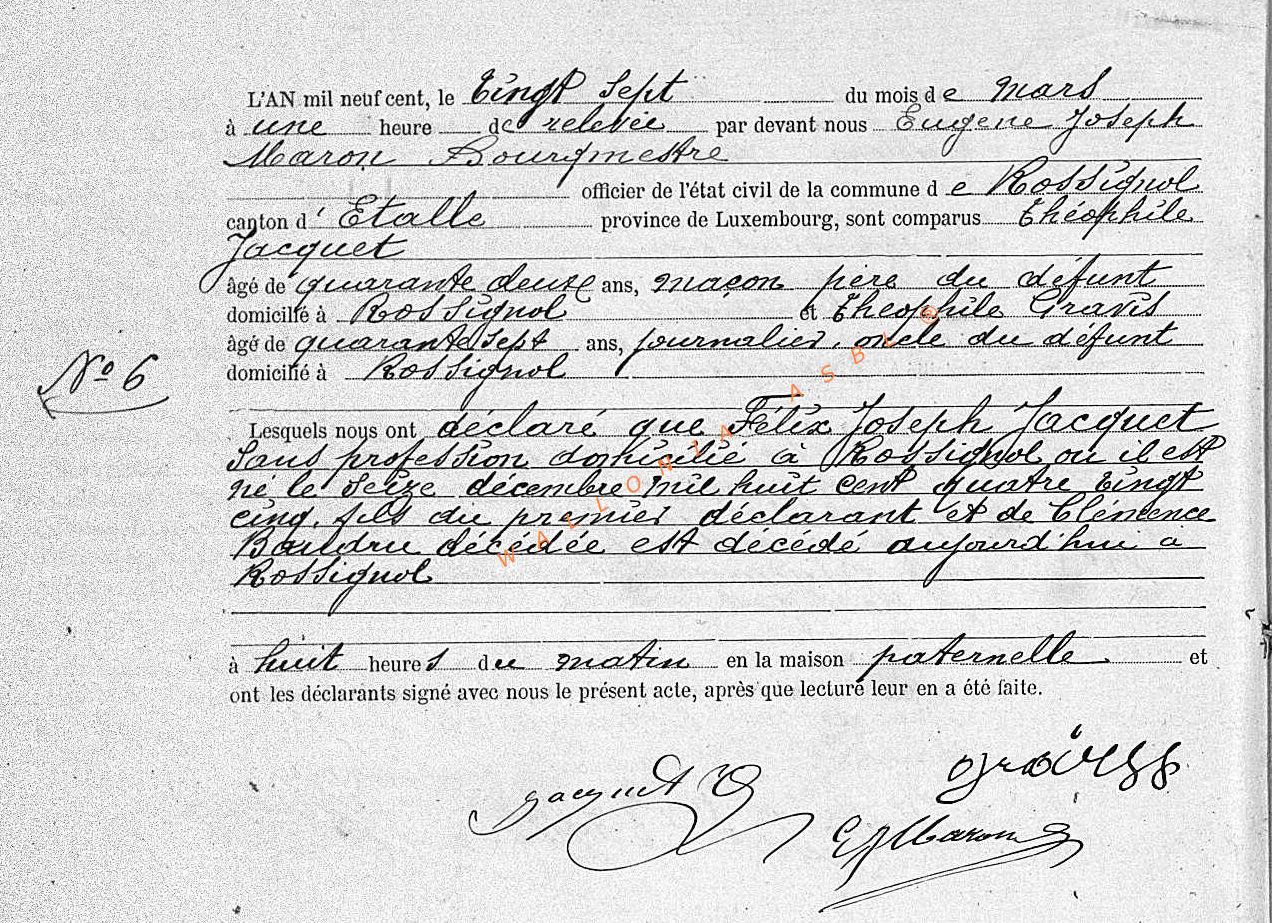 L'AN mil neuf cent, le Vingt sept du mois de mars
à une heure de relevée par devant nous Eugène Joseph
Maron Bourgmestre
officier de l'état civil de la commune de Rossignol
canton d'Etalle province de Luxembourg, sont comparus Théophile
Jacquet
âgé de quarante deux ans, maçon père du défunt
domicilié à Rossignol et Théophile Gravis
âgé de quarante sept ans, journalier, oncle du défunt
domicilié à Rossignol
N° 6
Lesquels nous ont déclaré que Félix Joseph Jacquet
sans profession domicilié à Rossignol où il est
né le seize décembre mil huit cent quatre vingt
cinq, fils du premier déclarant et de Clémence
Baudru décédée est décédé aujourd'hui à
Rossignol
à huit heures du matin en la maison paternelle et
ont les déclarants signé avec nous le présent acte, après que lecture leur en a été faite.
Jacquet
EJMaron
WALLONIA ASBL ©